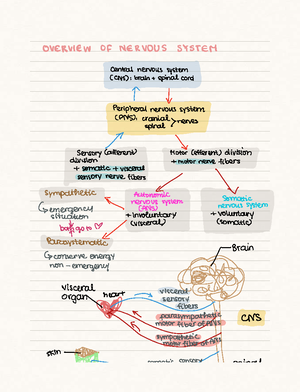 OVERVIEW OF NERVOUS SYSTEM
Central nervous system
(CNS): brain + spinal cord
Peripheral nervous system
(PNS): cranial
spinal > nerves
Sensory (afferent)
division
+ somatic + visceral
sensory nerve fibers
Motor (efferent) division
+ motor nerve fibers
Sympathetic
↳ emergency
situation
Parasystematic
↳ conserve energy
non-emergency
Autonomic
nervous system
(ANS)
+ involuntary
(visceral)
Somatic
nervous system
+ voluntary
(somatic)
Brain
visceral
organ
heart
visceral
sensory
fibers
parasympathetic
motor fiber of ANS
sympathetic
motor fiber of ANS
CNS
skin